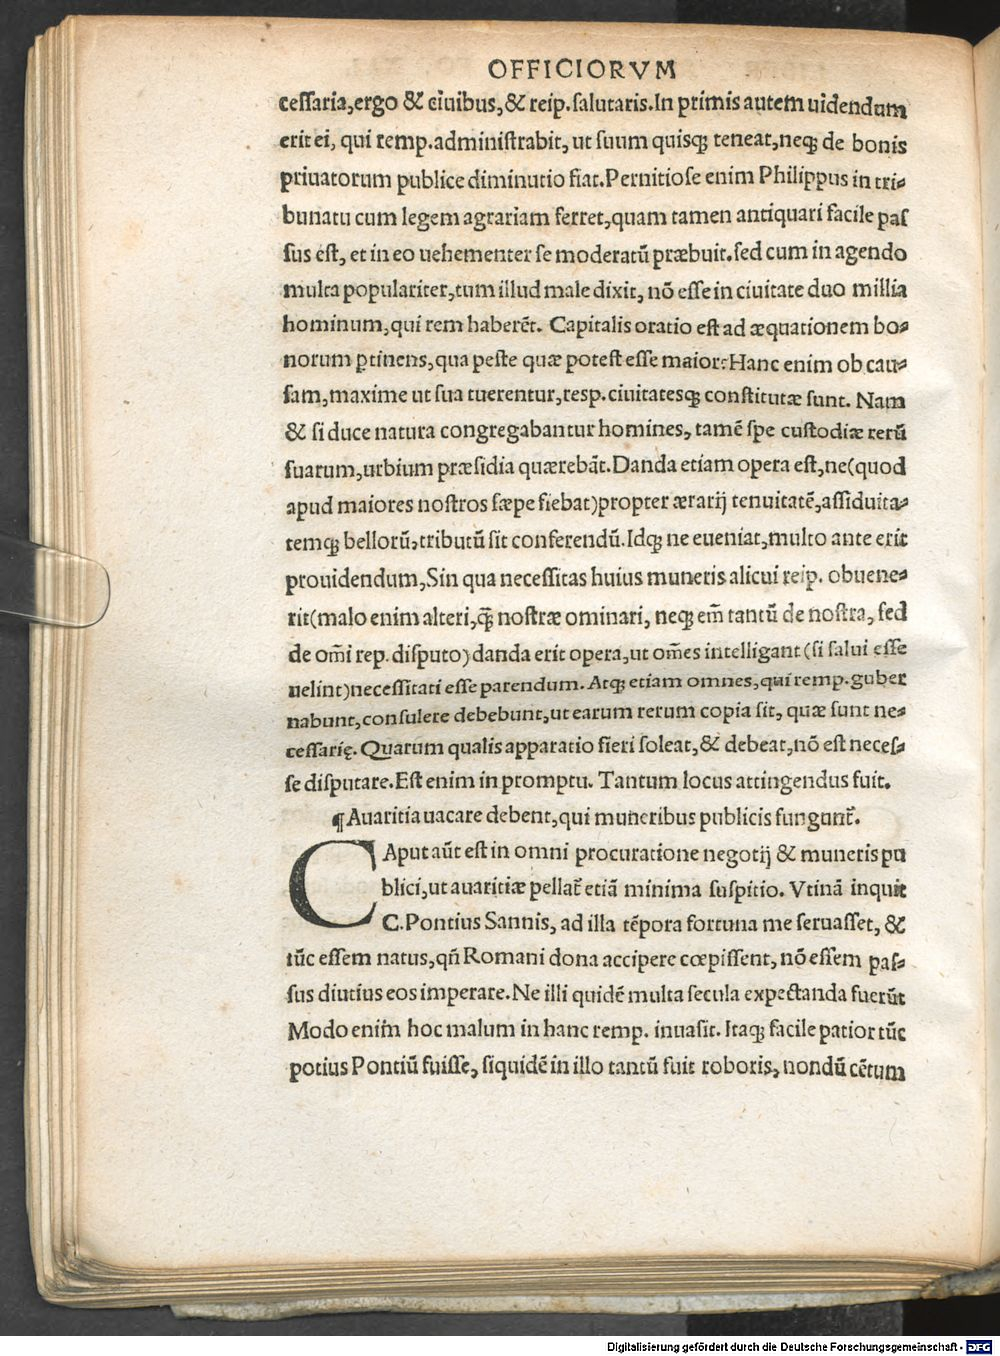 OFFICIORVM
cessaria,ergo & ciuibus,& reip.salutaris.In primis autem uidendum
erit ei, qui remp.administrabit, ut suum quisq; teneat,neq; de bonis
priuatorum publice diminutio fiat.Pernitiose enim Philippus in tri-
bunatu cum legem agrariam ferret,quam tamen antiquari facile pas
sus est, et in eo uehementer se moderatũ præbuit.sed cum in agendo
multa populariter,tum illud male dixit, nõ esse in ciuitate duo millia
hominum,qui rem haberẽt. Capitalis oratio est ad æquationem bo-
norum ꝑtinens,qua peste quæ potest esse maior?Hanc enim ob cau-
sam,maxime ut sua tuerentur,resp.ciuitatesq; constitutæ sunt. Nam
& si duce natura congregabantur homines, tamẽ spe custodiæ rerũ
suarum,urbium præsidia quærebãt.Danda etiam opera est,ne(quod
apud maiores nostros sæpe fiebat)propter ærarij tenuitatẽ,assiduita-
temq; bellorũ,tributũ sit conferendũ.Idq; ne eueniat,multo ante erit
prouidendum,Sin qua necessitas huius muneris alicui reip. obuene-
rit(malo enim alteri,q̃ nostræ ominari, neq; em̃ tantũ de nostra, sed
de om̃i rep. disputo)danda erit opera,ut om̃es intelligant(si salui esse
uelint)necessitati esse parendum.Atq; etiam omnes,qui remp.guber
nabunt,consulere debebunt,ut earum rerum copia sit, quæ sunt ne-
cessarię. Quarum qualis apparatio fieri soleat,& debeat,nõ est neces-
se disputare.Est enim in promptu. Tantum locus attingendus fuit.
¶ Auaritia uacare debent,qui muneribus publicis fungunt̃.
CAput aũt est in omni procuratione negotij & muneris pu
blici,ut auaritiæ pellat̃ etiã minima suspitio. Vtinã inquit
C.Pontius Sannis, ad illa tẽpora fortuna me seruasset, &
tũc essem natus,qñ Romani dona accipere cœpissent, nõ essem pas-
sus diutius eos imperare.Ne illi quidẽ multa secula expectanda fuerũt
Modo enim̃ hoc malum in hanc remp. inuasit. Itaq; facile patior tũc
potius Pontiũ fuisse, siquidẽ in illo tantũ fuit roboris, nondũ cẽtum
Digitalisierung gefördert durch die Deutsche Forschungsgemeinschaft - DFG